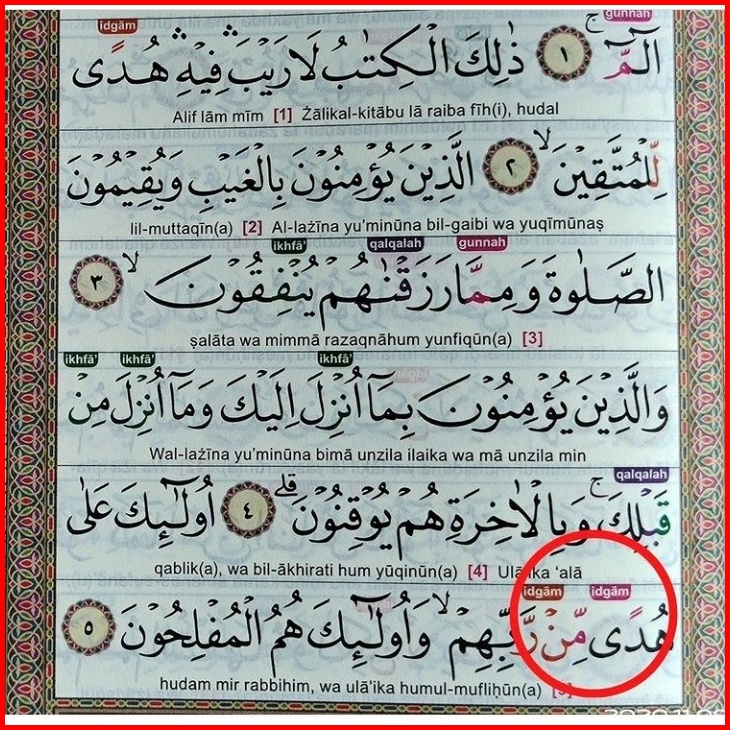 idgām gunnah
الۤمّۤ ۚ ١ ذٰلِكَ الْكِتٰبُ لَا رَيْبَ ۛ فِيْهِ ۛ هُدًى
Alif lām mīm [1] Żālikal-kitābu lā raiba fīh(i), hudal
لِّلْمُتَّقِيْنَ ۙ ٢ الَّذِيْنَ يُؤْمِنُوْنَ بِالْغَيْبِ وَيُقِيْمُوْنَ
lil-muttaqīn(a) [2] Al-lażīna yu’minūna bil-gaibi wa yuqīmūnaṣ
ikhfā’ qalqalah gunnah
الصَّلٰوةَ وَمِمَّا رَزَقْنٰهُمْ يُنْفِقُوْنَ ۙ ٣
ṣalāta wa mimmā razaqnāhum yunfiqūn(a) [3]
ikhfā’ ikhfā’ ikhfā’
وَالَّذِيْنَ يُؤْمِنُوْنَ بِمَآ اُنْزِلَ اِلَيْكَ وَمَآ اُنْزِلَ مِنْ
Wal-lażīna yu’minūna bimā unzila ilaika wa mā unzila min
qalqalah
قَبْلِكَ ۚ وَبِالْاٰخِرَةِ هُمْ يُوْقِنُوْنَ ۗ ٤ اُولٰۤىِٕكَ عَلٰى
qablik(a), wa bil-ākhirati hum yūqinūn(a) [4] Ulā’ika ‘alā
idgām idgām
هُدًى مِّنْ رَّبِّهِمْ ۙ وَاُولٰۤىِٕكَ هُمُ الْمُفْلِحُوْنَ ٥
hudam mir rabbihim, wa ulā’ika humul-mufliḥūn(a) [5]